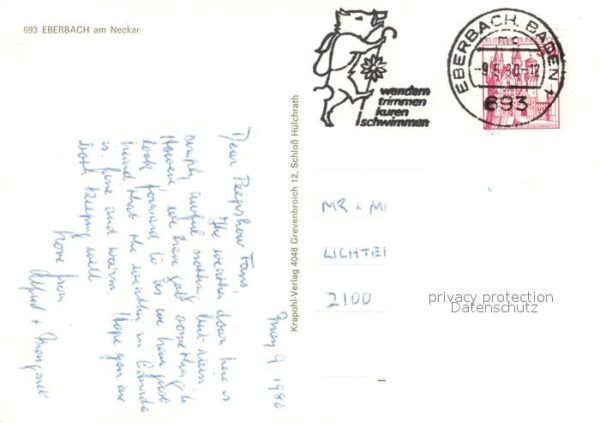 693 EBERBACH am Neckar
wandern
trimmen
kuren
schwimmen
EBERBACH, BADEN
-9.5.80-12
693
May 9 1980
Dear Peepshow Fans,
The weather down here is
simply awful nothing but rain.
However we have got something to
look forward to as we have just
heard that the weather in Canada
is fine and warm. Hope you are
both keeping well
Love from
Alfred + Margaret
Krapohl-Verlag 4048 Grevenbroich 12, Schloß Hülchrath
MR + M
LICHTE
2100
privacy protection
Datenschutz